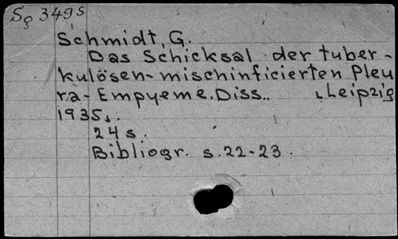 Sg 349s
Schmidt, G.
Das Schicksal der tuber-
kulösen-mischinficierten Pleu
ra-Empyeme. Diss.. Leipzig
1935.
24 s.
Bibliogr. s. 22-23.